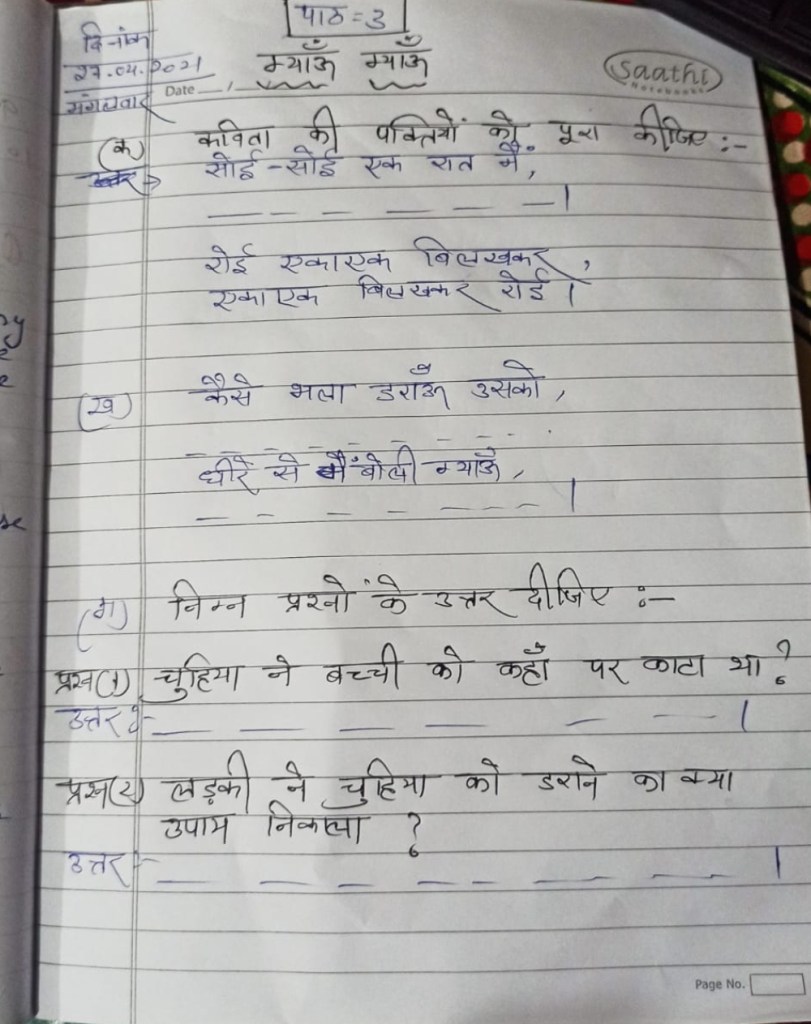 पाठ = 3
दिनांक
27.04.2021
मंगलवार
Date
म्याऊँ म्याऊँ
Saathi
Notebooks
(क) कविता की पंक्तियों को पूरा कीजिए :-
उत्तर → सोई-सोई एक रात मैं,
— — — — — — ।
रोई एकाएक बिलखकर,
एकाएक बिलखकर रोई।
(ख) कैसे भला डराऊँ उसको,
— — — — — — —
धीरे से मैं बोली म्याऊँ,
— — — — — — — ।
(ग) निम्न प्रश्नों के उत्तर दीजिए :-
प्रश्न(1) चुहिया ने बच्ची को कहाँ पर काटा था ?
उत्तर :- — — — — — — ।
प्रश्न(2) लड़की ने चुहिया को डराने का क्या
उपाय निकाला ?
उत्तर :- — — — — — — — ।
Page No.